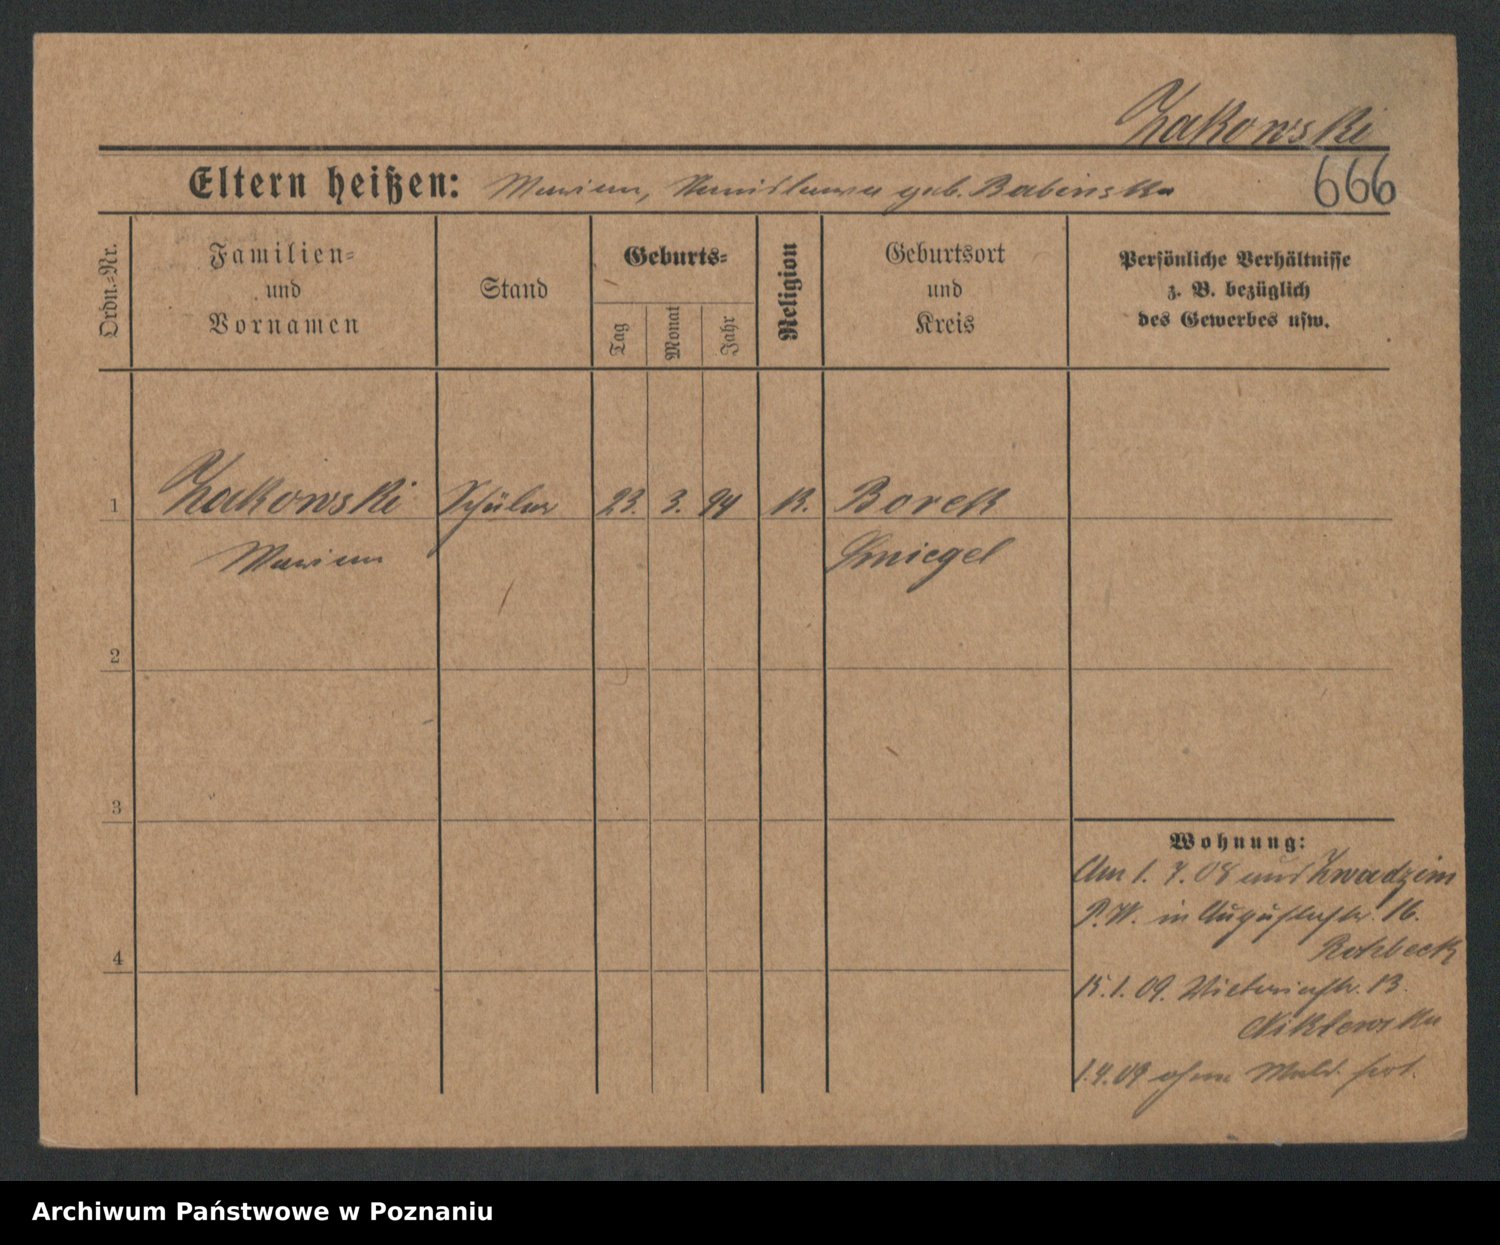 Żakowski
Eltern heißen: Marian, Stanisława geb. Babinska
666
Ordn.-Nr.
Familien-
und
Vornamen
Stand
Geburts-
Tag
Monat
Jahr
Religion
Geburtsort
und
Kreis
Persönliche Verhältnisse
z. B. bezüglich
des Gewerbes usw.
1 Żakowski Schüler 23. 3. 94 K. Borek
Marian Smiegel
2
3
4
Wohnung:
Am 1. 7. 08 aus
P.W. in Augustastr. 16.
Rohrbeck
15.1.09. Victoriastr. 13.
1.4.09 ohne Meld. fort.
Archiwum Państwowe w Poznaniu